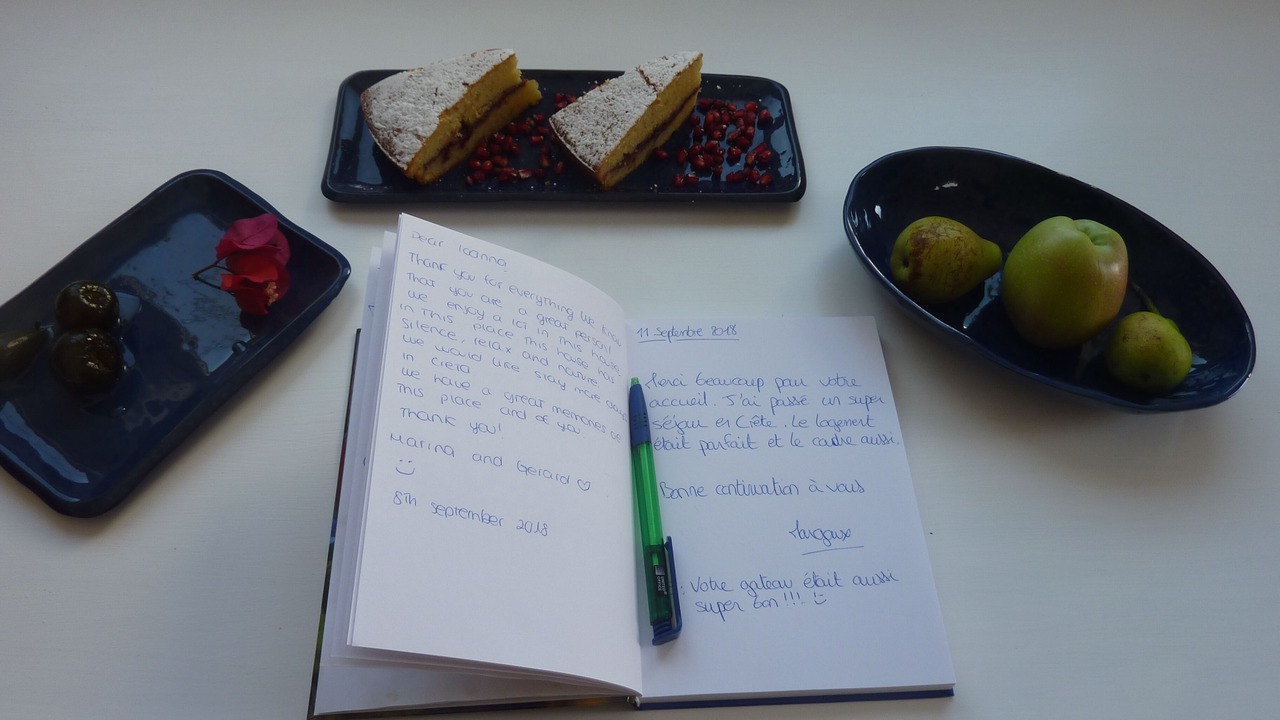 Dear Ioanna,
Thank you for everything. We know
that you are a great person!
We enjoy a lot in this house,
in this place. This house has
silence, relax and nature.
We would like stay more days
in Creta
We have a great memories of
this place and of you
Thank you!
Marina and Gerard ♡
8th september 2018
11 Septembre 2018
Merci beaucoup pour votre
accueil. J'ai passé un super
séjour en Crête. Le logement
était parfait et le cadre aussi.
Bonne continuation à vous
Margaux
Votre gateau était aussi
super bon!!!